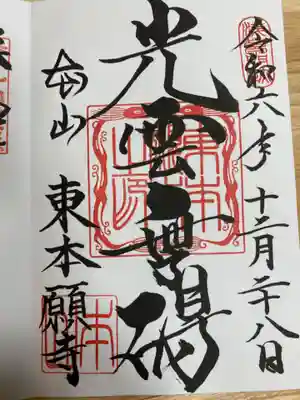 令和六年 十二月二十八日
光雲無碍
本山 東本願寺